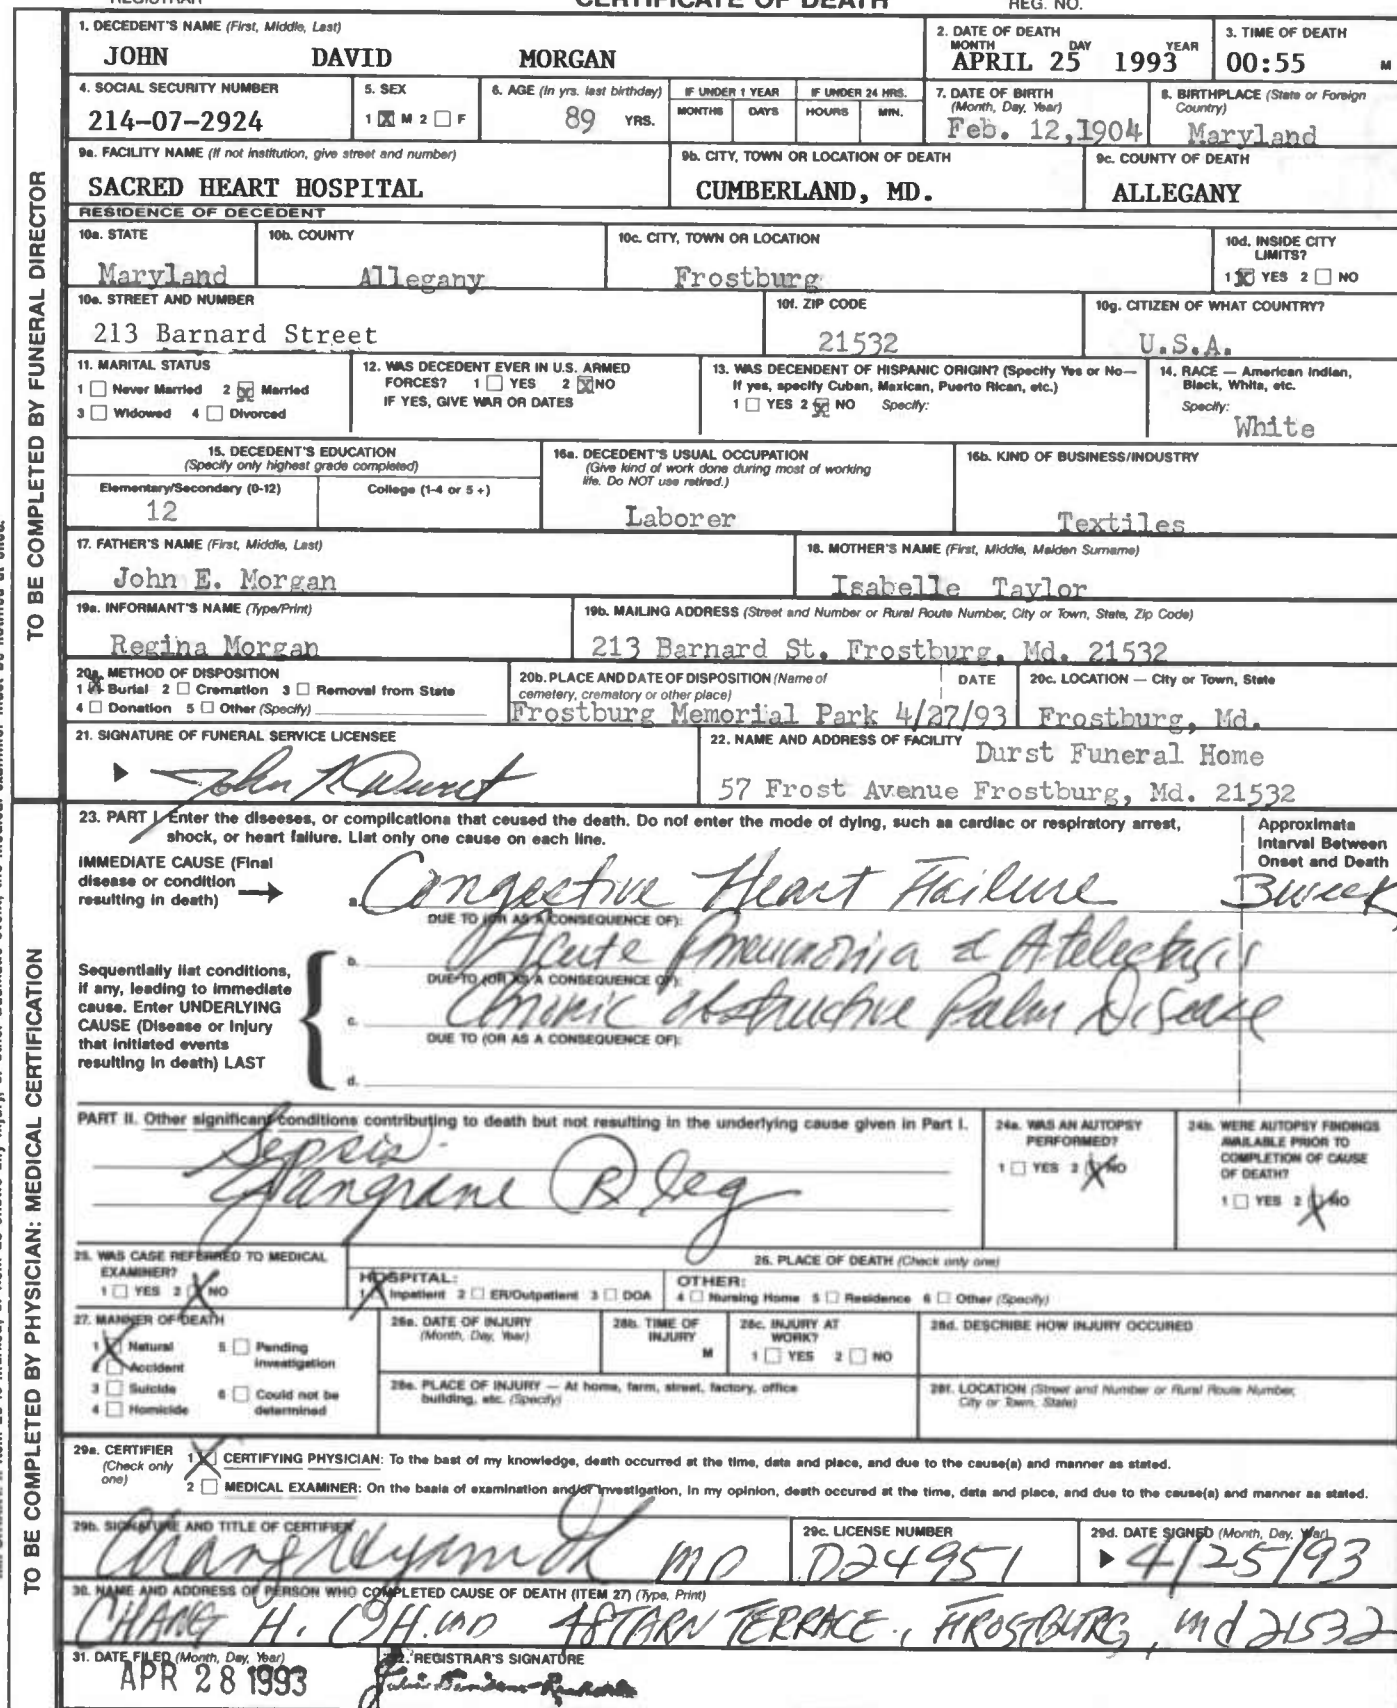 REGISTRAR CERTIFICATE OF DEATH REG. NO.
1. DECEDENT'S NAME (First, Middle, Last)
JOHN DAVID MORGAN
2. DATE OF DEATH
MONTH DAY YEAR
APRIL 25 1993
3. TIME OF DEATH
00:55 M
4. SOCIAL SECURITY NUMBER
214-07-2924
5. SEX
1 M 2 F
6. AGE (In yrs. last birthday)
89 YRS.
IF UNDER 1 YEAR
MONTHS DAYS
IF UNDER 24 HRS.
HOURS MIN.
7. DATE OF BIRTH
(Month, Day, Year)
Feb. 12,1904
8. BIRTHPLACE (State or Foreign
Country)
Maryland
9a. FACILITY NAME (If not institution, give street and number)
SACRED HEART HOSPITAL
9b. CITY, TOWN OR LOCATION OF DEATH
CUMBERLAND, MD.
9c. COUNTY OF DEATH
ALLEGANY
TO BE COMPLETED BY FUNERAL DIRECTOR
RESIDENCE OF DECEDENT
10a. STATE
Maryland
10b. COUNTY
Allegany
10c. CITY, TOWN OR LOCATION
Frostburg
10d. INSIDE CITY
LIMITS?
1 YES 2 NO
10e. STREET AND NUMBER
213 Barnard Street
10f. ZIP CODE
21532
10g. CITIZEN OF WHAT COUNTRY?
U.S.A.
11. MARITAL STATUS
1 Never Married 2 Married
3 Widowed 4 Divorced
12. WAS DECEDENT EVER IN U.S. ARMED
FORCES? 1 YES 2 NO
IF YES, GIVE WAR OR DATES
13. WAS DECENDENT OF HISPANIC ORIGIN? (Specify Yes or No—
If yes, specify Cuban, Maxican, Puerto Rican, etc.)
1 YES 2 NO Specify:
14. RACE — American Indian,
Black, White, etc.
Specify:
White
15. DECEDENT'S EDUCATION
(Specify only highest grade completed)
Elementary/Secondary (0-12) College (1-4 or 5 +)
12
16a. DECEDENT'S USUAL OCCUPATION
(Give kind of work done during most of working
life. Do NOT use retired.)
Laborer
16b. KIND OF BUSINESS/INDUSTRY
Textiles
17. FATHER'S NAME (First, Middle, Last)
John E. Morgan
18. MOTHER'S NAME (First, Middle, Maiden Surname)
Isabelle Taylor
19a. INFORMANT'S NAME (Type/Print)
Regina Morgan
19b. MAILING ADDRESS (Street and Number or Rural Route Number, City or Town, State, Zip Code)
213 Barnard St. Frostburg, Md. 21532
20a. METHOD OF DISPOSITION
1 Burial 2 Cremation 3 Removal from State
4 Donation 5 Other (Specify)
20b. PLACE AND DATE OF DISPOSITION (Name of
cemetery, crematory or other place)
DATE
Frostburg Memorial Park 4/27/93
20c. LOCATION — City or Town, State
Frostburg, Md.
21. SIGNATURE OF FUNERAL SERVICE LICENSEE
John R Durst
22. NAME AND ADDRESS OF FACILITY
Durst Funeral Home
57 Frost Avenue Frostburg, Md. 21532
TO BE COMPLETED BY PHYSICIAN: MEDICAL CERTIFICATION
23. PART I. Enter the diseases, or complications that ceused the death. Do not enter the mode of dying, such as cardiac or respiratory arrest,
shock, or heart failure. List only one cause on each line.
Approximate
Interval Between
Onset and Death
IMMEDIATE CAUSE (Final
disease or condition
resulting in death)
a. Congestive Heart Failure 3 week
DUE TO (OR AS A CONSEQUENCE OF):
b. Acute Pneumonia & Atelectasis
DUE TO (OR AS A CONSEQUENCE OF):
c. Chronic Obstructive Pulm Disease
DUE TO (OR AS A CONSEQUENCE OF):
d.
Sequentially list conditions,
if any, leading to immediate
cause. Enter UNDERLYING
CAUSE (Disease or injury
that initiated events
resulting in death) LAST
PART II. Other significant conditions contributing to death but not resulting in the underlying cause given in Part I.
Sepsis
Gangrene R leg
24a. WAS AN AUTOPSY
PERFORMED?
1 YES 2 NO
24b. WERE AUTOPSY FINDINGS
AVAILABLE PRIOR TO
COMPLETION OF CAUSE
OF DEATH?
1 YES 2 NO
25. WAS CASE REFERRED TO MEDICAL
EXAMINER?
1 YES 2 NO
26. PLACE OF DEATH (Check only one)
HOSPITAL:
1 Inpatient 2 ER/Outpatient 3 DOA
OTHER:
4 Nursing Home 5 Residence 6 Other (Specify)
27. MANNER OF DEATH
1 Natural 5 Pending
2 Accident Investigation
3 Suicide 6 Could not be
4 Homicide determined
28a. DATE OF INJURY
(Month, Day, Year)
28b. TIME OF
INJURY
M
28c. INJURY AT
WORK?
1 YES 2 NO
28d. DESCRIBE HOW INJURY OCCURED
28e. PLACE OF INJURY — At home, farm, street, factory, office
building, etc. (Specify)
28f. LOCATION (Street and Number or Rural Route Number,
City or Town, State)
29a. CERTIFIER
(Check only
one)
1 CERTIFYING PHYSICIAN: To the best of my knowledge, death occurred at the time, data and place, and due to the cause(s) and manner as stated.
2 MEDICAL EXAMINER: On the basis of examination and/or investigation, in my opinion, death occured at the time, data and place, and due to the cause(s) and manner as stated.
29b. SIGNATURE AND TITLE OF CERTIFIER
MD
29c. LICENSE NUMBER
D24951
29d. DATE SIGNED (Month, Day, Year)
4/25/93
30. NAME AND ADDRESS OF PERSON WHO COMPLETED CAUSE OF DEATH (ITEM 27) (Type, Print)
CHANG H. OH. MD 48 TARN TERRACE, FROSTBURG, Md 21532
31. DATE FILED (Month, Day, Year)
APR 28 1993
32. REGISTRAR'S SIGNATURE